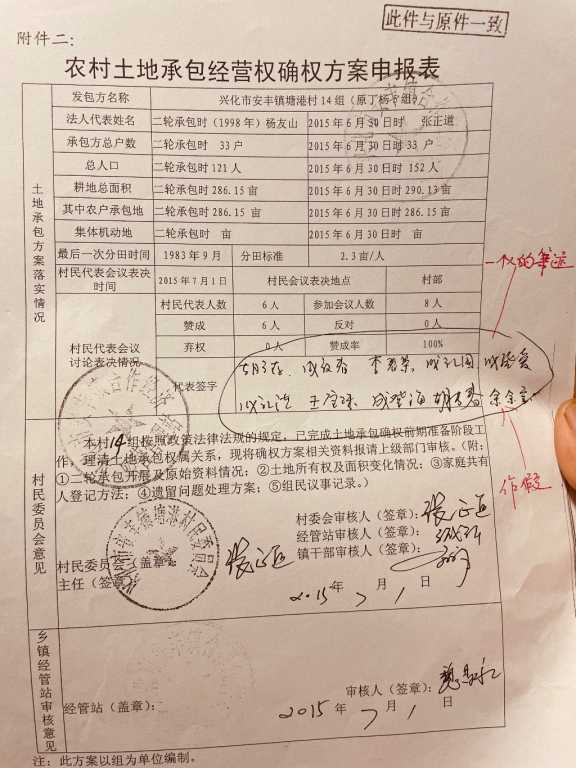 此件与原件一致
附件二:
农村土地承包经营权确权方案申报表
发包方名称 兴化市安丰镇塘港村14组(原丁杨 组)
法人代表姓名 二轮承包时(1998年)杨友山 2015年6月30日时 张正道
承包方总户数 二轮承包时 33户 2015年6月30日时33户
总人口 二轮承包时121人 2015年6月30日时 152人
耕地总面积 二轮承包时286.15亩 2015年6月30日时290.13亩
其中农户承包地 二轮承包时286.15 亩 2015年6月30日时286.15 亩
集体机动地 二轮承包时 亩 2015年6月30日时 亩
土地承包方案落实情况
最后一次分田时间 1983年9月 分田标准 2.3亩/人
村民代表会议表决时间 2015年7月1日 村民会议表决地点 村部
村民代表会议讨论表决情况
村民代表人数 6人 参加会议人数 8人
赞成 6人 反对 0人
弃权 0人 赞成率 100%
代表签字
一人的笔迹
作假
村民委员会意见
本村14组按照政策法律法规的规定,已完成土地承包确权前期准备阶段工
作,理清土地承包权属关系,现将确权方案相关资料报请上级部门审核。(附:
①二轮承包开展及原始资料情况;②土地所有权及面积变化情况;③家庭共有
人登记方法;④遗留问题处理方案;⑤组民议事记录。)
村委会审核人(签章): 张正道
经管站审核人(签章):
镇干部审核人(签章):
村民委员会(盖章)
主任(签章) 张正道
2015年7月1日
乡镇经管站审核意见
审核人(签章):
经管站(盖章): 2015年7月1日
注:此方案以组为单位编制。